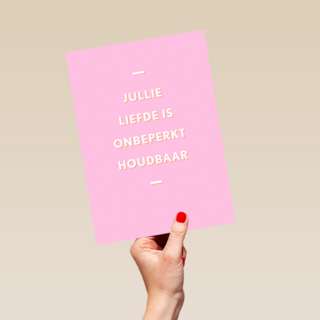 JULLIE
LIEFDE IS
ONBEPERKT
HOUDBAAR